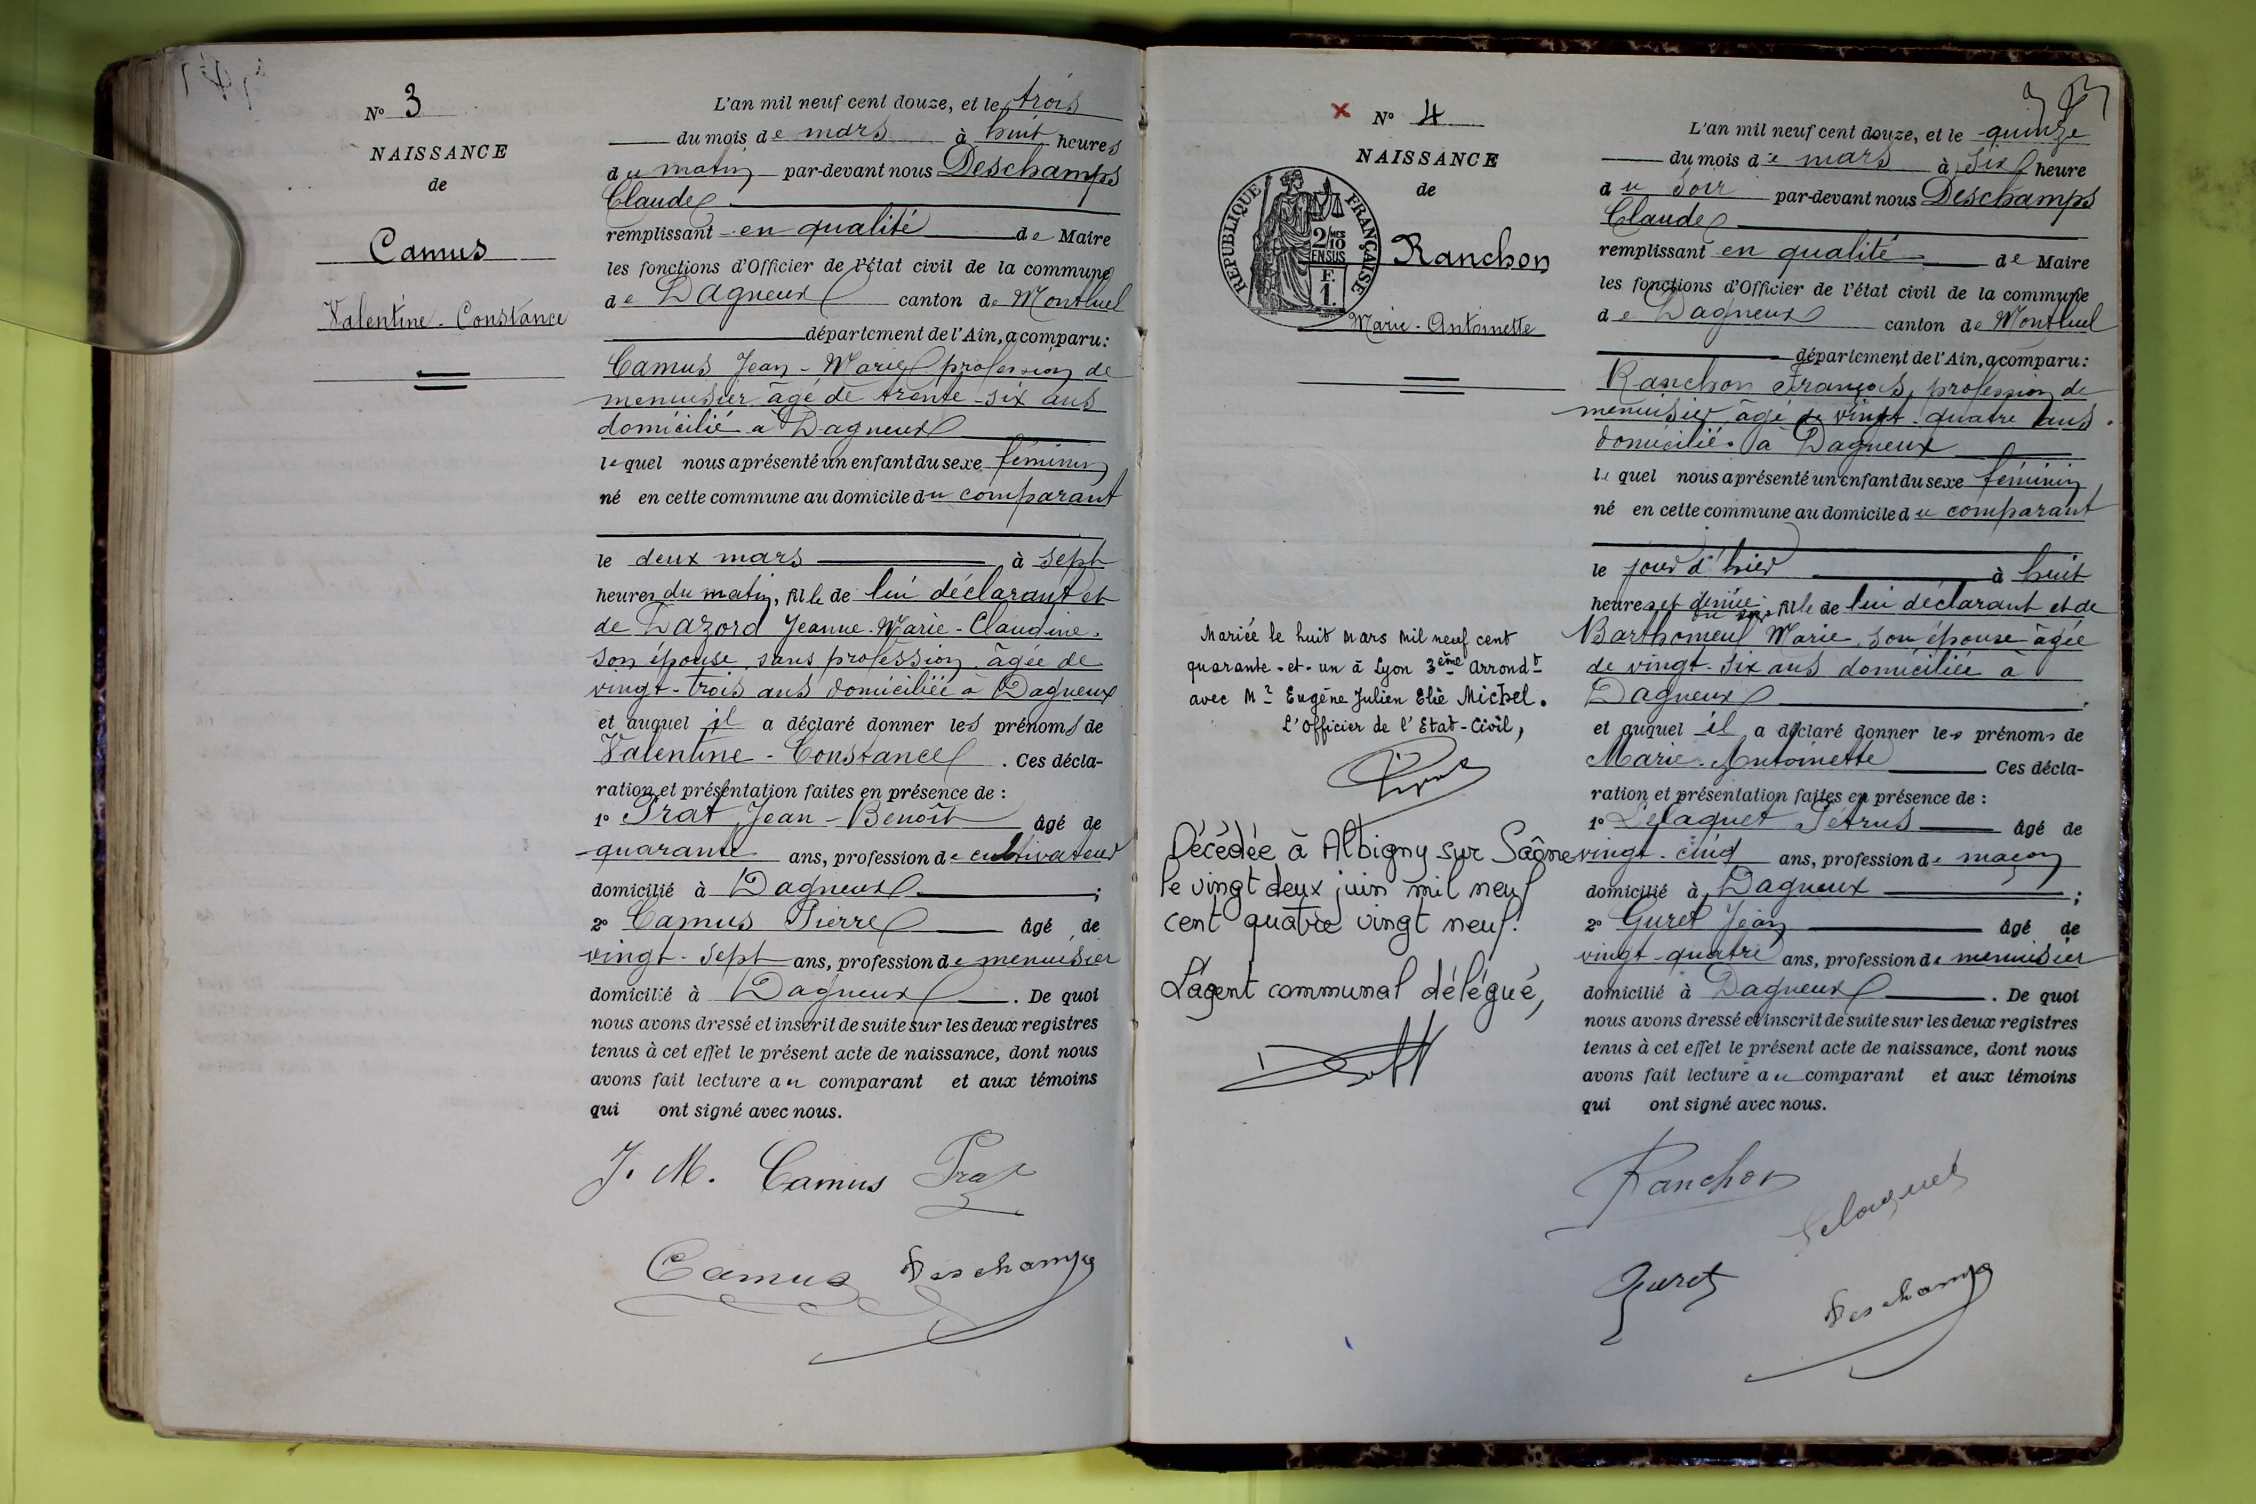 N° 3
NAISSANCE
de
Camus
Valentine - Constance
L'an mil neuf cent douze, et le trois
du mois de mars à huit heures
du matin par-devant nous Deschamps
Claude
remplissant en qualité de Maire
les fonctions d'Officier de l'état civil de la commune
de Dagneux canton de Montluel
département de l'Ain, a comparu :
Camus Jean - Marie profession de
menuisier âgé de trente - six ans
domicilié à Dagneux
lequel nous a présenté un enfant du sexe féminin
né en cette commune au domicile du comparant
le deux mars à sept
heures du matin, fille de lui déclarant et
de Dazord Jeanne - Marie - Claudine,
son épouse, sans profession, âgée de
vingt - trois ans domiciliée à Dagneux
et auquel il a déclaré donner les prénoms de
Valentine - Constance . Ces décla-
ration et présentation faites en présence de :
1° Prat Jean - Benoît âgé de
quarante ans, profession de cultivateur
domicilié à Dagneux ;
2° Camus Pierre âgé de
vingt - sept ans, profession de menuisier
domicilié à Dagneux . De quoi
nous avons dressé et inscrit de suite sur les deux registres
tenus à cet effet le présent acte de naissance, dont nous
avons fait lecture au comparant et aux témoins
qui ont signé avec nous.
J. M. Camus Prat
Camus Deschamps
N° 4
NAISSANCE
de
REPUBLIQUE FRANÇAISE
2/10
EN SUS
F.
1.
Ranchon
Marie - Antoinette
Mariée le huit Mars Mil neuf cent
quarante - et - un à Lyon 3ème Arrondt
avec Mr Eugène Julien Elie Michel.
L'Officier de l'Etat - Civil,
Décédée à Albigny sur Saône
le vingt deux juin mil neuf
cent quatre vingt neuf.
L'agent communal délégué,
L'an mil neuf cent douze, et le quinze
du mois de mars à six heure
du soir par-devant nous Deschamps
Claude
remplissant en qualité de Maire
les fonctions d'Officier de l'état civil de la commune
de Dagneux canton de Montluel
département de l'Ain, a comparu :
Ranchon François, profession de
menuisier, âgé de vingt - quatre ans
domicilié à Dagneux
lequel nous a présenté un enfant du sexe féminin
né en cette commune au domicile du comparant
le jour d'hier à huit
heures et demie du soir, fille de lui déclarant et de
Barthomeuf Marie, son épouse âgée
de vingt - six ans domiciliée à
Dagneux
et auquel il a déclaré donner les prénoms de
Marie - Antoinette Ces décla-
ration et présentation faites en présence de :
1° Delaquet Pétrus âgé de
vingt - cinq ans, profession de maçon
domicilié à Dagneux ;
2° Guret Jean âgé de
vingt - quatre ans, profession de menuisier
domicilié à Dagneux . De quoi
nous avons dressé et inscrit de suite sur les deux registres
tenus à cet effet le présent acte de naissance, dont nous
avons fait lecture au comparant et aux témoins
qui ont signé avec nous.
Ranchon
Delaquet
Guret
Deschamps